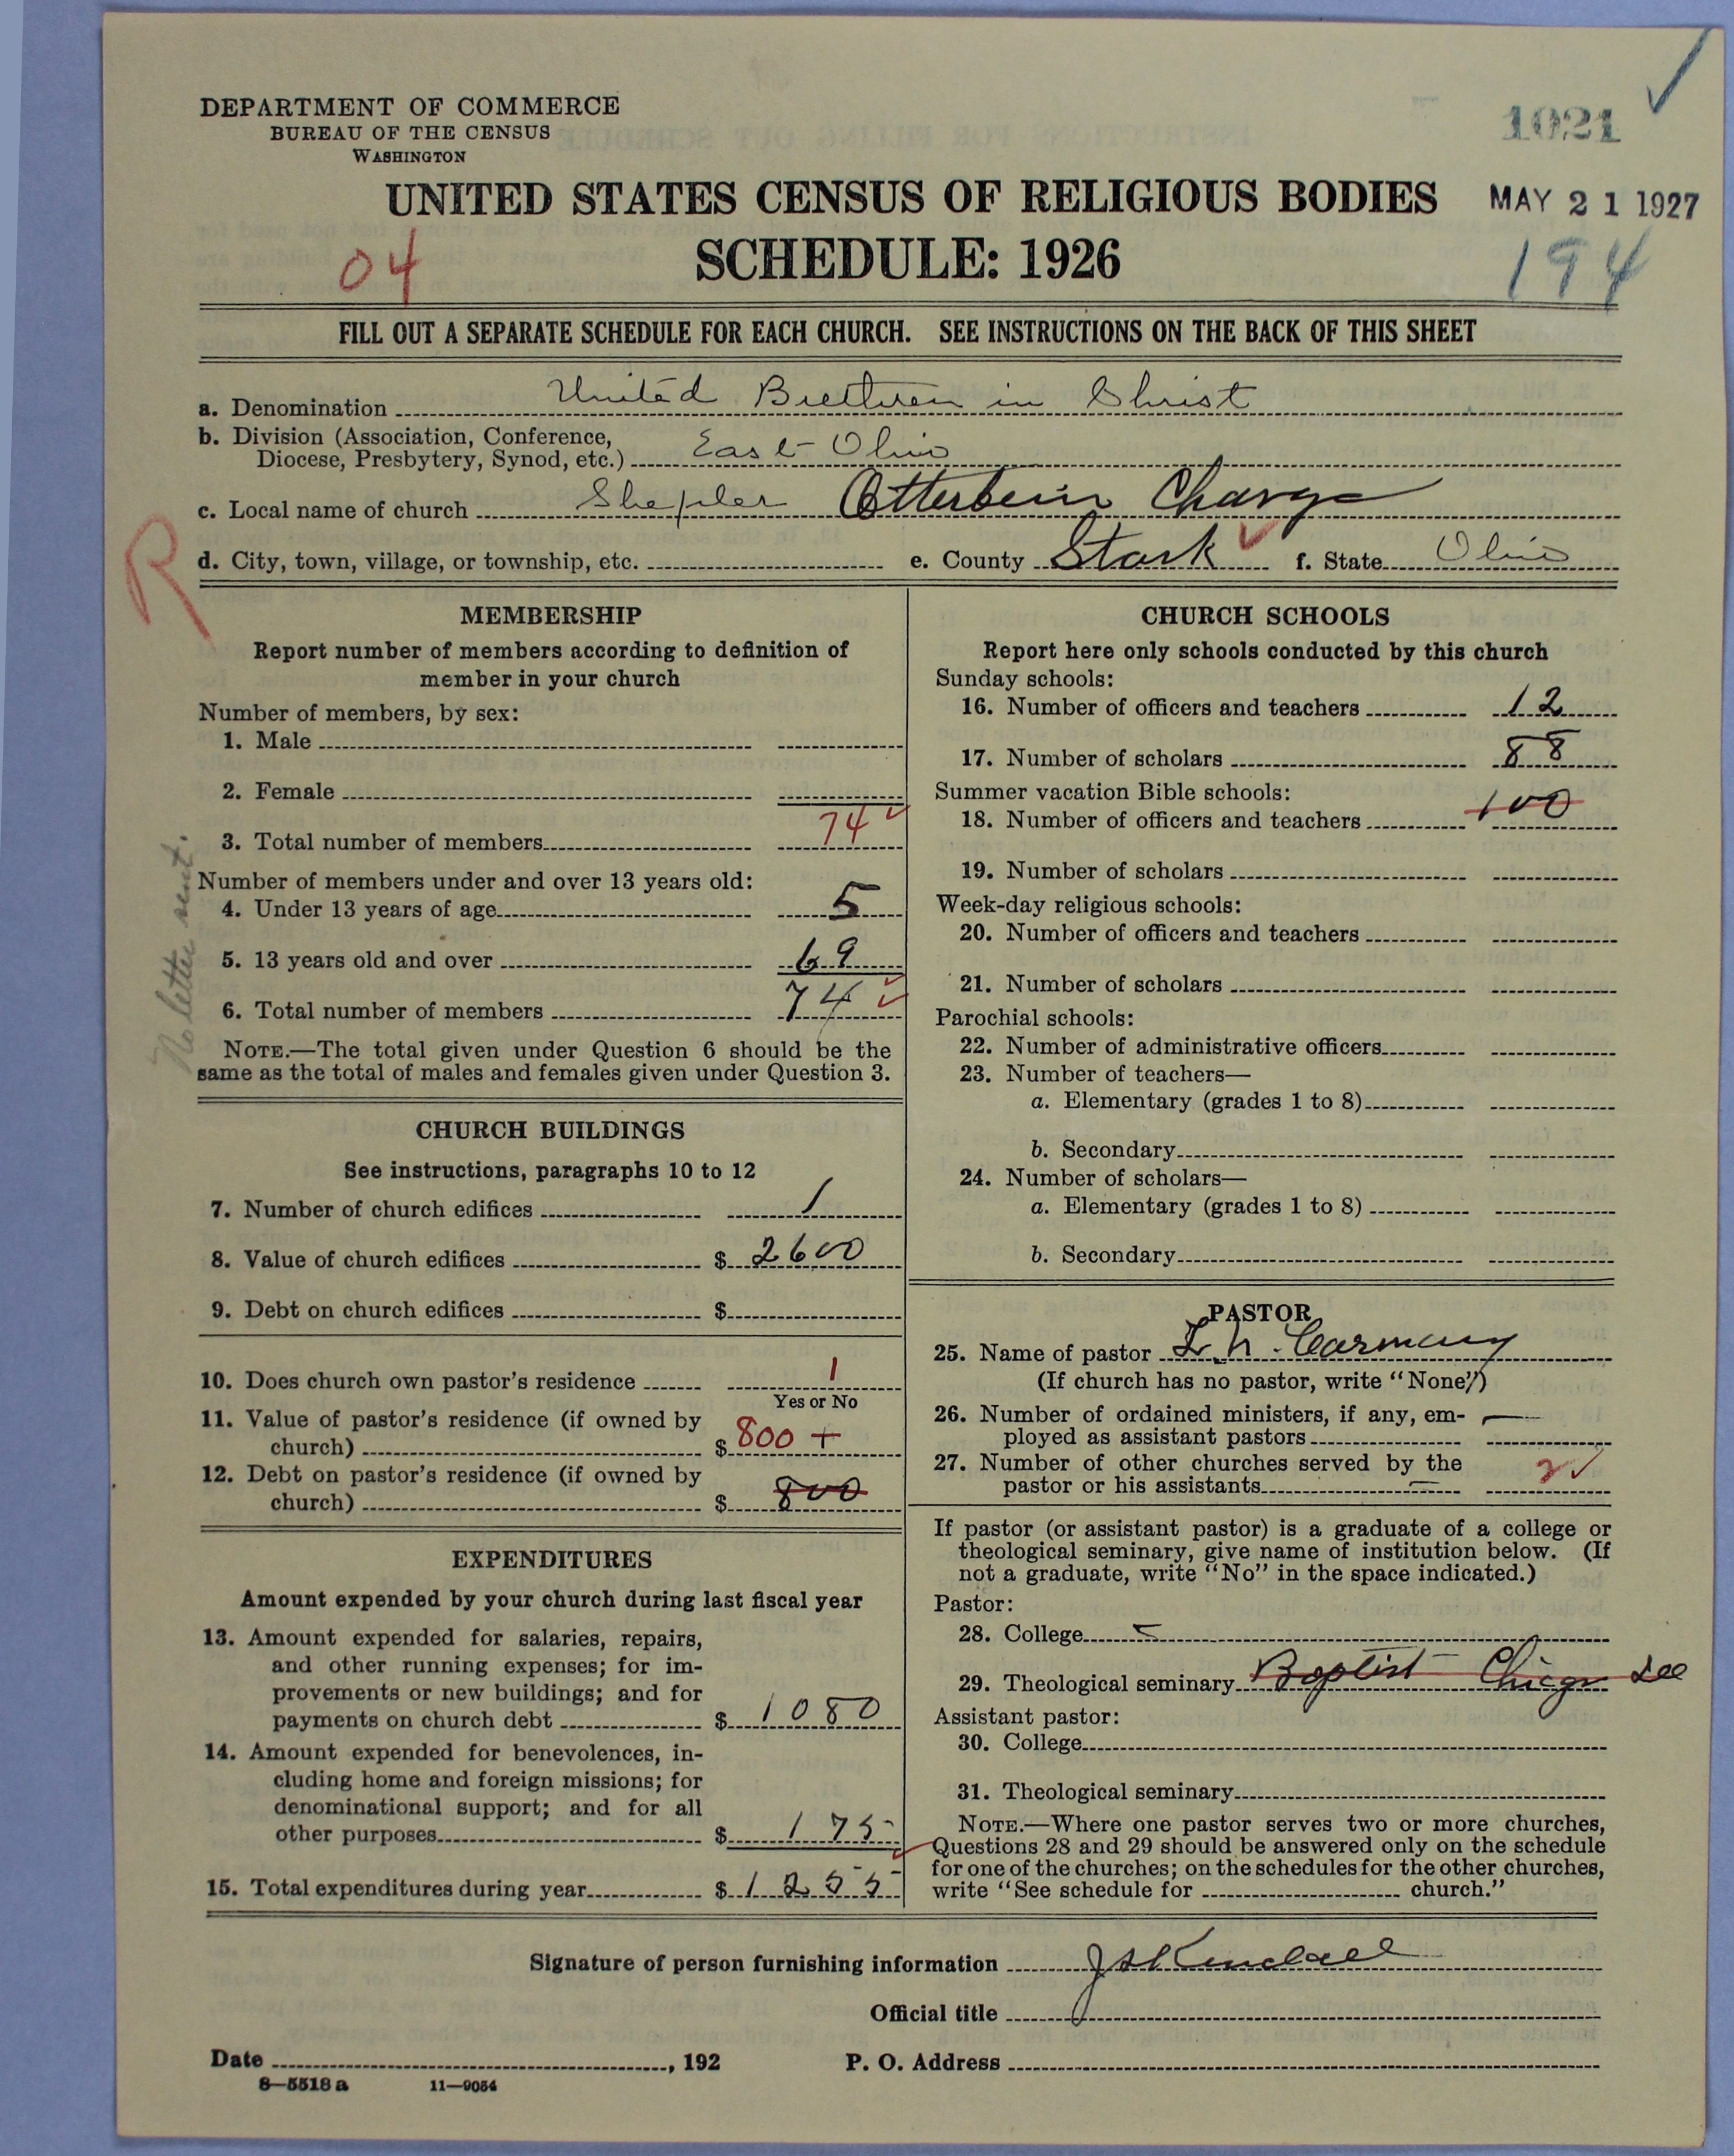 DEPARTMENT OF COMMERCE
BUREAU OF THE CENSUS
WASHINGTON
1021
UNITED STATES CENSUS OF RELIGIOUS BODIES
MAY 21 1927
SCHEDULE: 1926
04
194
FILL OUT A SEPARATE SCHEDULE FOR EACH CHURCH. SEE INSTRUCTIONS ON THE BACK OF THIS SHEET
a. Denomination United Brethren in Christ
b. Division (Association, Conference,
Diocese, Presbytery, Synod, etc.) East Ohio
c. Local name of church Shepler Otterbein Charge
R
d. City, town, village, or township, etc. e. County Stark f. State Ohio
MEMBERSHIP
Report number of members according to definition of
member in your church
Number of members, by sex:
1. Male
2. Female
3. Total number of members 74
Number of members under and over 13 years old:
4. Under 13 years of age 5
5. 13 years old and over 69
6. Total number of members 74
NOTE.—The total given under Question 6 should be the
same as the total of males and females given under Question 3.
No letter sent.
CHURCH BUILDINGS
See instructions, paragraphs 10 to 12
7. Number of church edifices 1
8. Value of church edifices $ 2600
9. Debt on church edifices $
10. Does church own pastor's residence 1
Yes or No
11. Value of pastor's residence (if owned by
church) $ 800 +
12. Debt on pastor's residence (if owned by
church) $ 800
EXPENDITURES
Amount expended by your church during last fiscal year
13. Amount expended for salaries, repairs,
and other running expenses; for im-
provements or new buildings; and for
payments on church debt $ 1080
14. Amount expended for benevolences, in-
cluding home and foreign missions; for
denominational support; and for all
other purposes $ 175
15. Total expenditures during year $ 1255
CHURCH SCHOOLS
Report here only schools conducted by this church
Sunday schools:
16. Number of officers and teachers 12
17. Number of scholars 88
Summer vacation Bible schools:
100
18. Number of officers and teachers
19. Number of scholars
Week-day religious schools:
20. Number of officers and teachers
21. Number of scholars
Parochial schools:
22. Number of administrative officers
23. Number of teachers—
a. Elementary (grades 1 to 8)
b. Secondary
24. Number of scholars—
a. Elementary (grades 1 to 8)
b. Secondary
PASTOR
25. Name of pastor L. h. Carmany
(If church has no pastor, write "None")
26. Number of ordained ministers, if any, em-
ployed as assistant pastors —
27. Number of other churches served by the
pastor or his assistants — 2
If pastor (or assistant pastor) is a graduate of a college or
theological seminary, give name of institution below. (If
not a graduate, write "No" in the space indicated.)
Pastor:
28. College
29. Theological seminary Baptist Chicago
Assistant pastor:
30. College
31. Theological seminary
NOTE.—Where one pastor serves two or more churches,
Questions 28 and 29 should be answered only on the schedule
for one of the churches; on the schedules for the other churches,
write "See schedule for church."
Signature of person furnishing information J S Kendall
Official title
Date , 192 P. O. Address
8—5518 a 11—9054